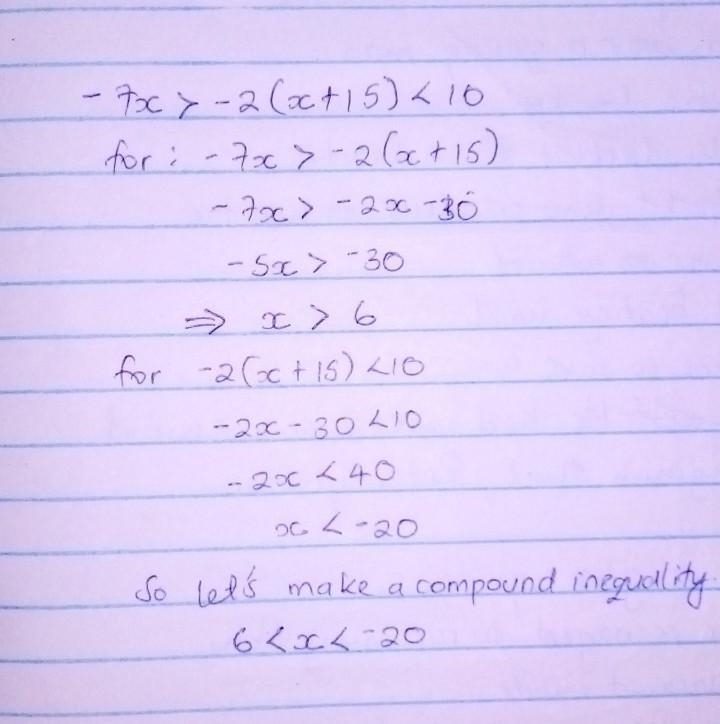 -7x > -2(x+15) < 10
for: -7x > -2(x+15)
-7x > -2x -30
-5x > -30
⇒ x > 6
for -2(x+15) <10
-2x - 30 <10
-2x < 40
x < -20
So let's make a compound inequality.
6 <x< -20